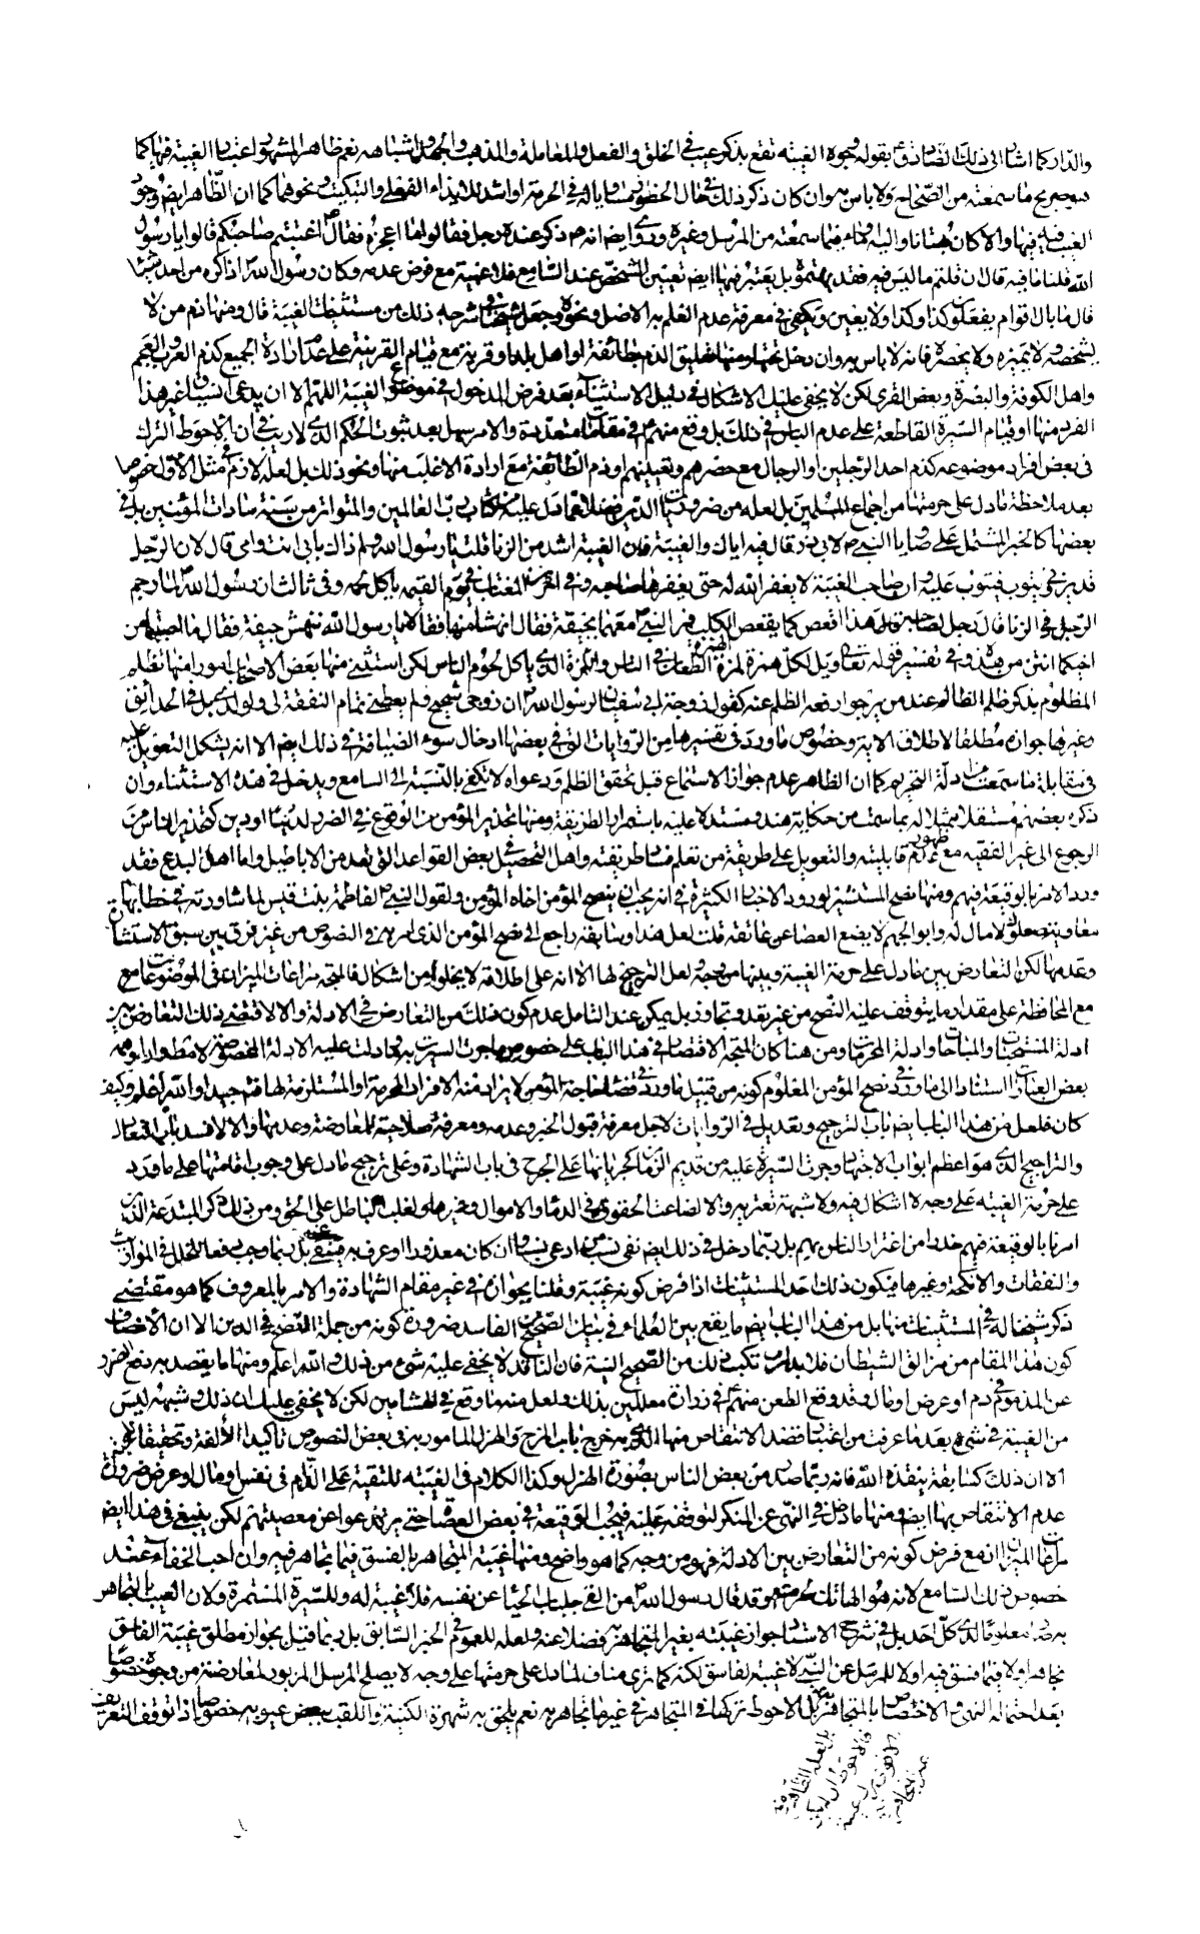 والدار كما اشار الى ذلك الصادق ع بقوله وجوه الغيبة تقع بذكر عيب في الخلق والفعل والمعاملة والمذهب والجهل واشباهه نعم ظاهر المشهور اعتبار الغيبة فيها كما
هو صريح ما سمعته من الصحاح ولا باس به وان كان ذكر ذلك في حال الحضور مساويا له في الحرمة او اشد للايذاء الفعلي والتبكيت ونحوهما كما ان الظاهر ايضا وجود
العيب فيه فيها والا كان بهتانا واليه فيما سمعته من المرسل وغيره وروى ايضا انه ص ذكر عنده رجل فقالوا ما اعجزه فقال ص اغتبتم صاحبكم قالوا يا رسول
الله قلنا ما فيه قال ان قلتم ما ليس فيه فقد بهتموه بل يعتبر فيها ايضا تعيين الشخص عند السامع فلا غيبة مع فرض عدمه وكان رسول الله ص اذا كره من احد شيئا
قال ما بال اقوام يفعلون كذا وكذا ولا يعين ويكفي في معرفة عدم العلم به الاصل ونحوه وجعل في شرحه ذلك من مستثنيات الغيبة قال ومنها ذم من لا
يشخصه ولا يميزه ولا يحصره فانه لا باس به وان دخل تحتها ومنها تعليق الذم بطائفة او اهل بلدة او قرية مع قيام القرينة على عدم ارادة الجميع كذم العرب والعجم
واهل الكوفة والبصرة وبعض القرى لكن لا يخفى عليك الاشكال في دليل الاستثناء بعد فرض الدخول في موضوع الغيبة اللهم الا ان يدعى انسياق غير هذا
الفرد منها او قيام السيرة القاطعة على عدم الباس في ذلك بل وقع منهم ع في مقامات متعددة والامر سهل بعد ثبوت الحكم الذي لا ريب في ان الاحوط الترك
في بعض افراد موضوعه كذم احد الرجلين او الرجال مع حضرهم وتعيينهم او ذم الطائفة مع ارادة الاغلب منها ونحو ذلك بل لعله لازم في مثل الاول خصوصا
بعد ملاحظة ما دل على حرمتها من اجماع المسلمين بل لعله من ضروريات الدين فضلا عما دل عليه من كتاب رب العالمين والمتواتر من سنة سادات المؤمنين بل في
بعضها كالخبر المشتمل على وصايا النبي ص لابي ذر قال فيه اياك والغيبة فان الغيبة اشد من الزنا قلت يا رسول الله ولم ذاك بابي انت وامي قال لان الرجل
قد يزني ويتوب فيتوب عليه وان صاحب الغيبة لا يغفر الله له حتى يغفرها صاحبه وفي اخر المغتاب يوم القيمة ياكل لحمه وفي ثالث ان رسول الله ص لما رجم
الرجل في الزنا قال رجل لصاحبه هذا اقعص كما يقعص الكلب فمر النبي ص معهما بجيفة فقال انهشا منها فقالا يا رسول الله ننهش جيفة فقال ما اصبتما من
اخيكما انتن من هذه وفي تفسير قوله تعالى ويل لكل همزة لمزة الطعان في الناس واللمزة الذي ياكل لحوم الناس لكن استثنى منها بعض الاصحاب امورا منها تظلم
المظلوم بذكر ظلم الظالم عند من يرجو رفعه الظلم عنه كقول زوجة ابي سفيان لرسول الله ص ان زوجي شحيح فلم يعطني تمام النفقة لي ولولدي بل في الحدائق
وغيرها جوازه مطلقا لاطلاق الاية وخصوص ما ورد في تفسيرها من الروايات التي في بعضها ادخال سوء الضيافة في ذلك ايضا الا انه يشكل التعويل عليه
في مقابلة ما سمعت من ادلة التحريم كما ان الظاهر عدم جواز الاستماع قبل تحقق الظلم ودعواه لا تكفي بالنسبة الى السامع ويدخل في هذه الاستثناء وان
ذكره بعضهم مستقلا ممثلا له بما سمعت من حكاية هند ومستدلا عليه باستمرار الطريقة ومنها تحذير المؤمن من الوقوع في الضرر لدنيا او دين كتحذير الناس من
الرجوع الى غير الفقيه مع ظهور عدم قابليته والتعويل على طريقة من تعلم فساد طريقته واهل التحصيل في بعض القواعد التي تعد من الاباطيل واما اهل البدع فقد
ورد الامر بالوقيعة فيهم ومنها نصح المستشير لورود الاخبار الكثيرة في انه يجب ان ينصح المؤمن اخاه المؤمن ولقول النبي ص لفاطمة بنت قيس لما شاورته في خطابها
معاوية صعلوك لا مال له وابو الجهم لا يضع العصا عن عاتقه قلت لعل هذا وسابقه راجع الى نصح المؤمن الذي امر به في النصوص من غير فرق بين سبق الاستشارة
وعدمها لكن التعارض بين ما دل على حرمة الغيبة وبينها من وجه ولعل الترجيح لها الا انه على اطلاقه لا يخلو من اشكال فالمتجه مراعات الميزان في الموضوعات مع
مع المحافظة على مقدار ما يتوقف عليه النصح من غير تعد وتجاوز بل يمكن عند التامل عدم كون ذلك من التعارض في الادلة والا لاقتضى ذلك التعارض بين
ادلة المستحبات والمباحات وادلة المحرمات ومن هنا كان المتجه الاقتصار في هذا الباب على خصوص ما جرت السيرة به ودلت عليه الادلة المخصوصة لا مطلقا
بعض العبارات استنادا الى ما ورد في نصح المؤمن المعلوم كونه من قبيل ما ورد في قضاء حاجة المؤمن لا يراد منه الافراد المحرمة او المستلزمة لها فتدبر جيدا والله اعلم وكيف
كان فلعل من هذا الباب ايضا باب الترجيح وتعديل في الروايات لاجل معرفة قبول الخبر وعدمه ومعرفة صلاحيته للمعارضة وعدمها والا لانسد باب التعادل
والتراجيح الذي هو اعظم ابواب الاجتهاد وجرت السيرة عليه من قديم الزمان كجريانها على الجرح في باب الشهادة وعلى ترجيح ما دل على وجوب اقامتها على ما ورد
على حرمة الغيبة على وجه لا اشكال فيه ولا شبهة تعتريه والا لضاعت الحقوق في الدماء والاموال وغيرها ولغلب الباطل على الحق ومن ذلك ذكر المبتدعة الذين
امرنا بالوقيعة فيهم حذرا من اغترار الناس بهم بل ربما دخل في ذلك ايضا نفي نسب من ادعى نسبا وان كان معذورا او عرف به فينتفى عنه بل ربما وجب دفعا للخلل في المواريث
والنفقات والانكحة وغيرها فيكون ذلك احد المستثنيات اذا فرض كونه غيبة وقلنا بجوازه في غير مقام الشهادة والامر بالمعروف كما هو مقتضى
ذكر شيخنا له في المستثنيات منها بل من هذا الباب ايضا ما يقع بين العلماء في بيان الصحيح من الفاسد ضرورة كونه من جملة النصح في الدين الا ان الانصاف
كون هذا المقام من مزالق الشيطان فلا بد ان تكتب ذلك من الصحيح النية فان الناقد لا يخفى عليه شيء من ذلك والله اعلم ومنها ما يقصد به دفع الضرر
عن المذموم في دم او عرض او مال وقد وقع الطعن منهم ع في زرارة معللين بذلك ولعل منه ما وقع في الهشامين لكن لا يخفى عليك ان ذلك وشبهه ليس
من الغيبة في شيء بعد ما عرفت من اعتبار قصد الانتقاص منها الذي به خرج باب المزح والهزل المامور به في بعض النصوص تاكيدا للالفة وتخفيفا
الا ان ذلك كسابقه ينقده الله فانه ربما صدر من بعض الناس بصورة الهزل وكذا الكلام في الغيبة للتقية على الذام في نفس او مال او عرض ضرورة
عدم الانتقاص بها ايضا ومنها ما دخل في النهي عن المنكر لتوقفه عليه فيجب الوقيعة في بعض العصاة حتى يرتدعوا عن معصيتهم لكن ينبغي في هذا ايضا
مراعات الميزان مع فرض كونه من التعارض بين الادلة فهو من وجه كما هو واضح ومنها غيبة المتجاهر بالفسق فيما تجاهر فيه وان احب الخفاء عند
خصوص ذلك السامع لانه هو الهاتك لحرمته وقد قال رسول الله ص من القى جلباب الحياء عن نفسه فلا غيبة له وللسيرة المستمرة ولان العيب المتجاهر
به صار معلوما لدى كل احد بل في شرح الاستاد جواز غيبته بغير المتجاهر به فضلا عنه ولعله للعموم في الخبر السابق بل ربما قيل بجواز مطلق غيبة الفاسق
تجاهر او لا فيما فسق فيه او لا للمرسل عن النبي ص لا غيبة لفاسق لكنه كما ترى مناف لما دل على حرمتها على وجه لا يصلح المرسل المزبور لمعارضته من وجوه خصوصا
بعد احتماله النهي والاختصاص بالمتجاهر بل الاحوط تركها في المتجاهر في غير ما تجاهر به نعم يلحق به شهرة الكنية واللقب ببعض عيوبه خصوصا اذا توقف التعريف